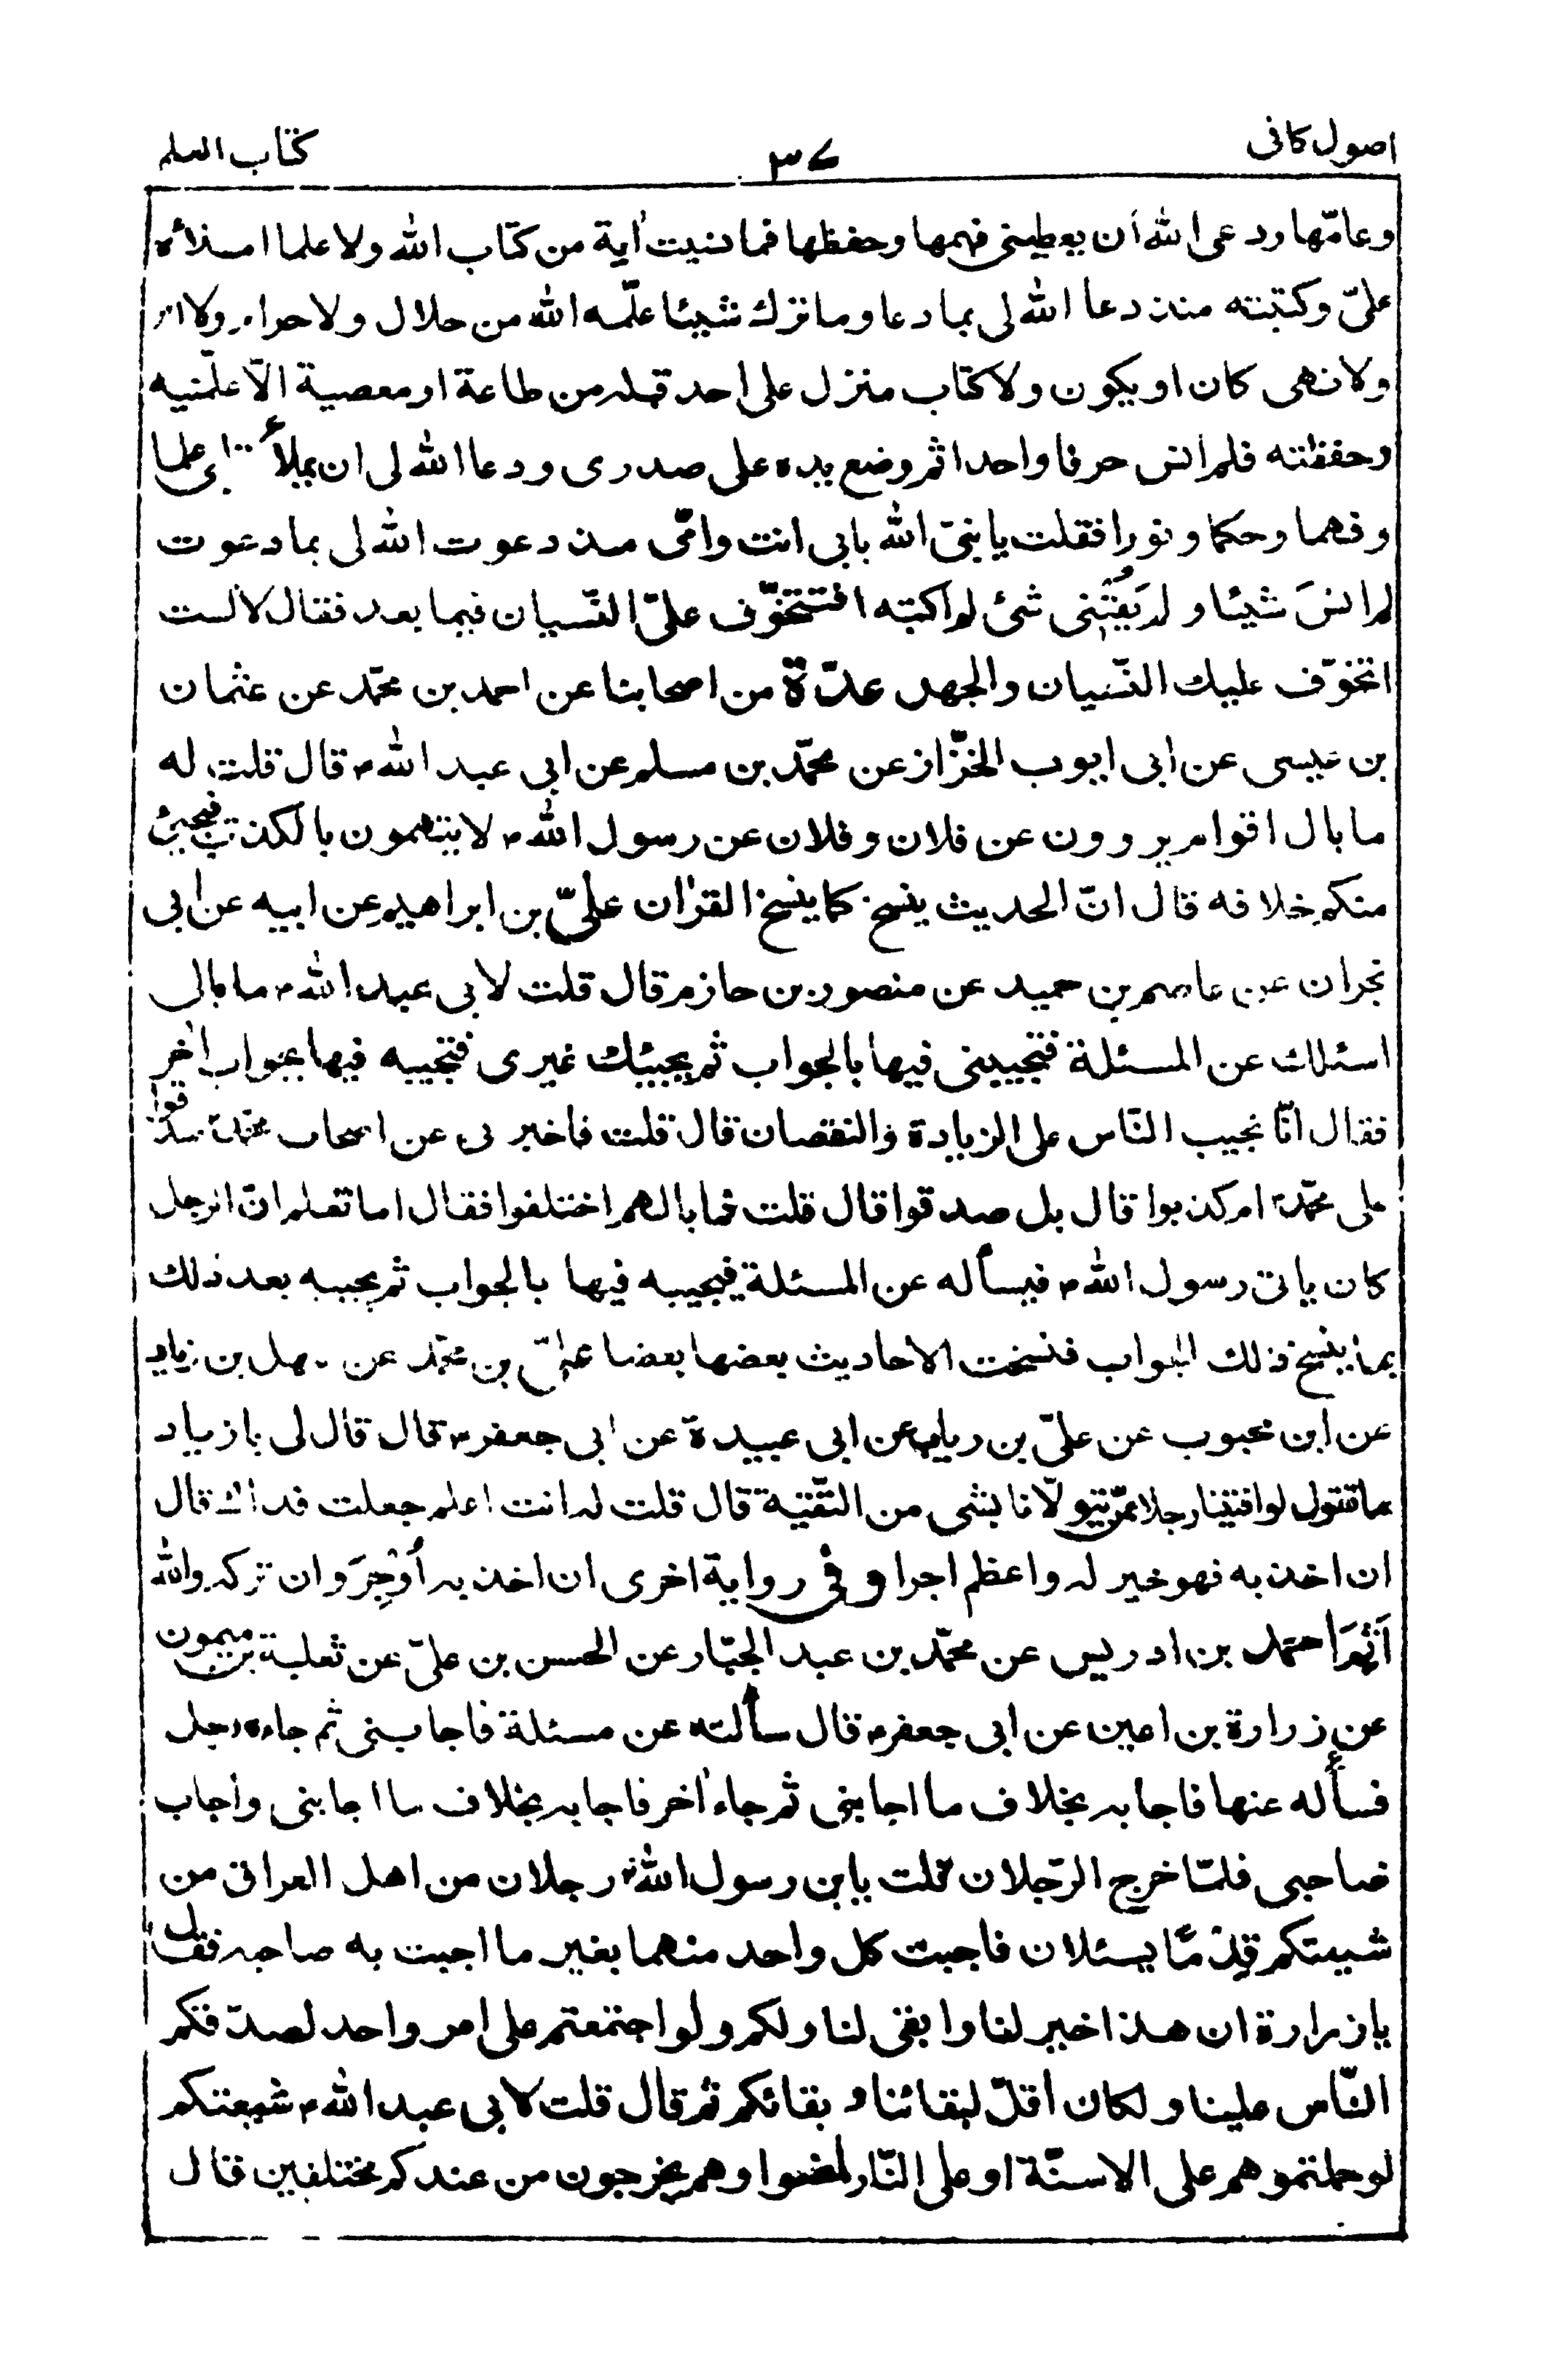 اصول كافى
٣٧
كتاب العلم
وعامّها ودعى الله أن يعطينى فهمها وحفظها فما نسيت اٰية من كتاب الله ولا علما املائه
علىّ وكتبته منذ دعا الله لى بما دعا وما ترك شيئا علّمه الله من حلال ولا حرام ولا امر
ولا نهى كان او يكون ولا كتاب منزل على احد قبله من طاعة او معصية الّا علّمنيه
وحفظته فلم انس حرفا واحدا ثم وضع يده على صدرى ودعا الله لى ان يملأ علما
وفهما وحكما ونورا فقلت يا نبىّ الله بابى انت وامّى منذ دعوت الله لى بما دعوت
لم انسَ شيئا ولم يَفُتْنى شئ لم اكتبه افتتخوّف علىّ النّسيان فيما بعد فقال لا لست
اتخوّف عليك النّسيان والجهل عدّة من اصحابنا عن احمد بن محمّد عن عثمان
بن عيسى عن ابى ايوب الخزّاز عن محمّد بن مسلم عن ابى عبد الله ؑ قال قلت له
ما بال اقوام يروون عن فلان وفلان عن رسول الله ؐ لا يتهمون بالكذب فيجيئ
منكم خلافه قال انّ الحديث ينسخ كما ينسخ القرٰان علىّ بن ابراهيم عن ابيه عن ابى
نجران عن عاصم بن حميد عن منصور بن حازم قال قلت لابى عبد الله ؑ ما بالى
اسئلك عن المسئلة فتجيبنى فيها بالجواب ثم يجيئك غيرى فتجيبه فيها بجواب اٰخر
فقال انّا نجيب النّاس على الزيادة والنقصان قال قلت فاخبرنى عن اصحاب محمّد ؐ صدقوا
على محمّد ؐ ام كذبوا قال بل صدقوا قال قلت فما بالهم اختلفوا فقال اما تعلم انّ الرجل
كان ياتى رسول الله ؐ فيسأله عن المسئلة فيجيبه فيها بالجواب ثم يجيبه بعد ذلك
بما ينسخ ذلك الجواب فنسخت الاحاديث بعضها بعضا علىّ بن محمّد عن سهل بن زياد
عن ابن محبوب عن علىّ بن رياب عن ابى عبيدة عن ابى جعفر ؑ قال قال لى يا زياد
ما تقول لو افتينا رجلا ممّن يتولّانا بشى من التّقيّة قال قلت له انت اعلم جعلت فداك قال
ان اخذ به فهو خير له واعظم اجرا وفى رواية اخرى ان اخذ به أُوْجِرَ وان تركه والله
اَثِمَ احمد بن ادريس عن محمّد بن عبد الجبّار عن الحسن بن علىّ عن ثعلبة بن ميمون
عن زرارة بن اعين عن ابى جعفر ؑ قال سألته عن مسئلة فاجابنى ثم جاءه رجل
فسأله عنها فاجابه بخلاف ما اجابنى ثم جاء اٰخر فاجابه بخلاف ما اجابنى واجاب
صاحبى فلمّا خرج الرّجلان قلت يابن رسول الله ؐ رجلان من اهل العراق من
شيعتكم قدِمَا يسئلان فاجبت كل واحد منهما بغير ما اجبت به صاحبه فقال
يا زرارة ان هذا خير لنا وابقى لنا ولكم ولو اجتمعتم على امر واحد لصدّقكم
النّاس علينا ولكان اقلّ لبقائنا وبقائكم ثم قال قلت لابى عبد الله ؑ شيعتكم
لو حملتموهم على الاسنّة او على النّار لمضوا وهم يخرجون من عندكم مختلفين قال